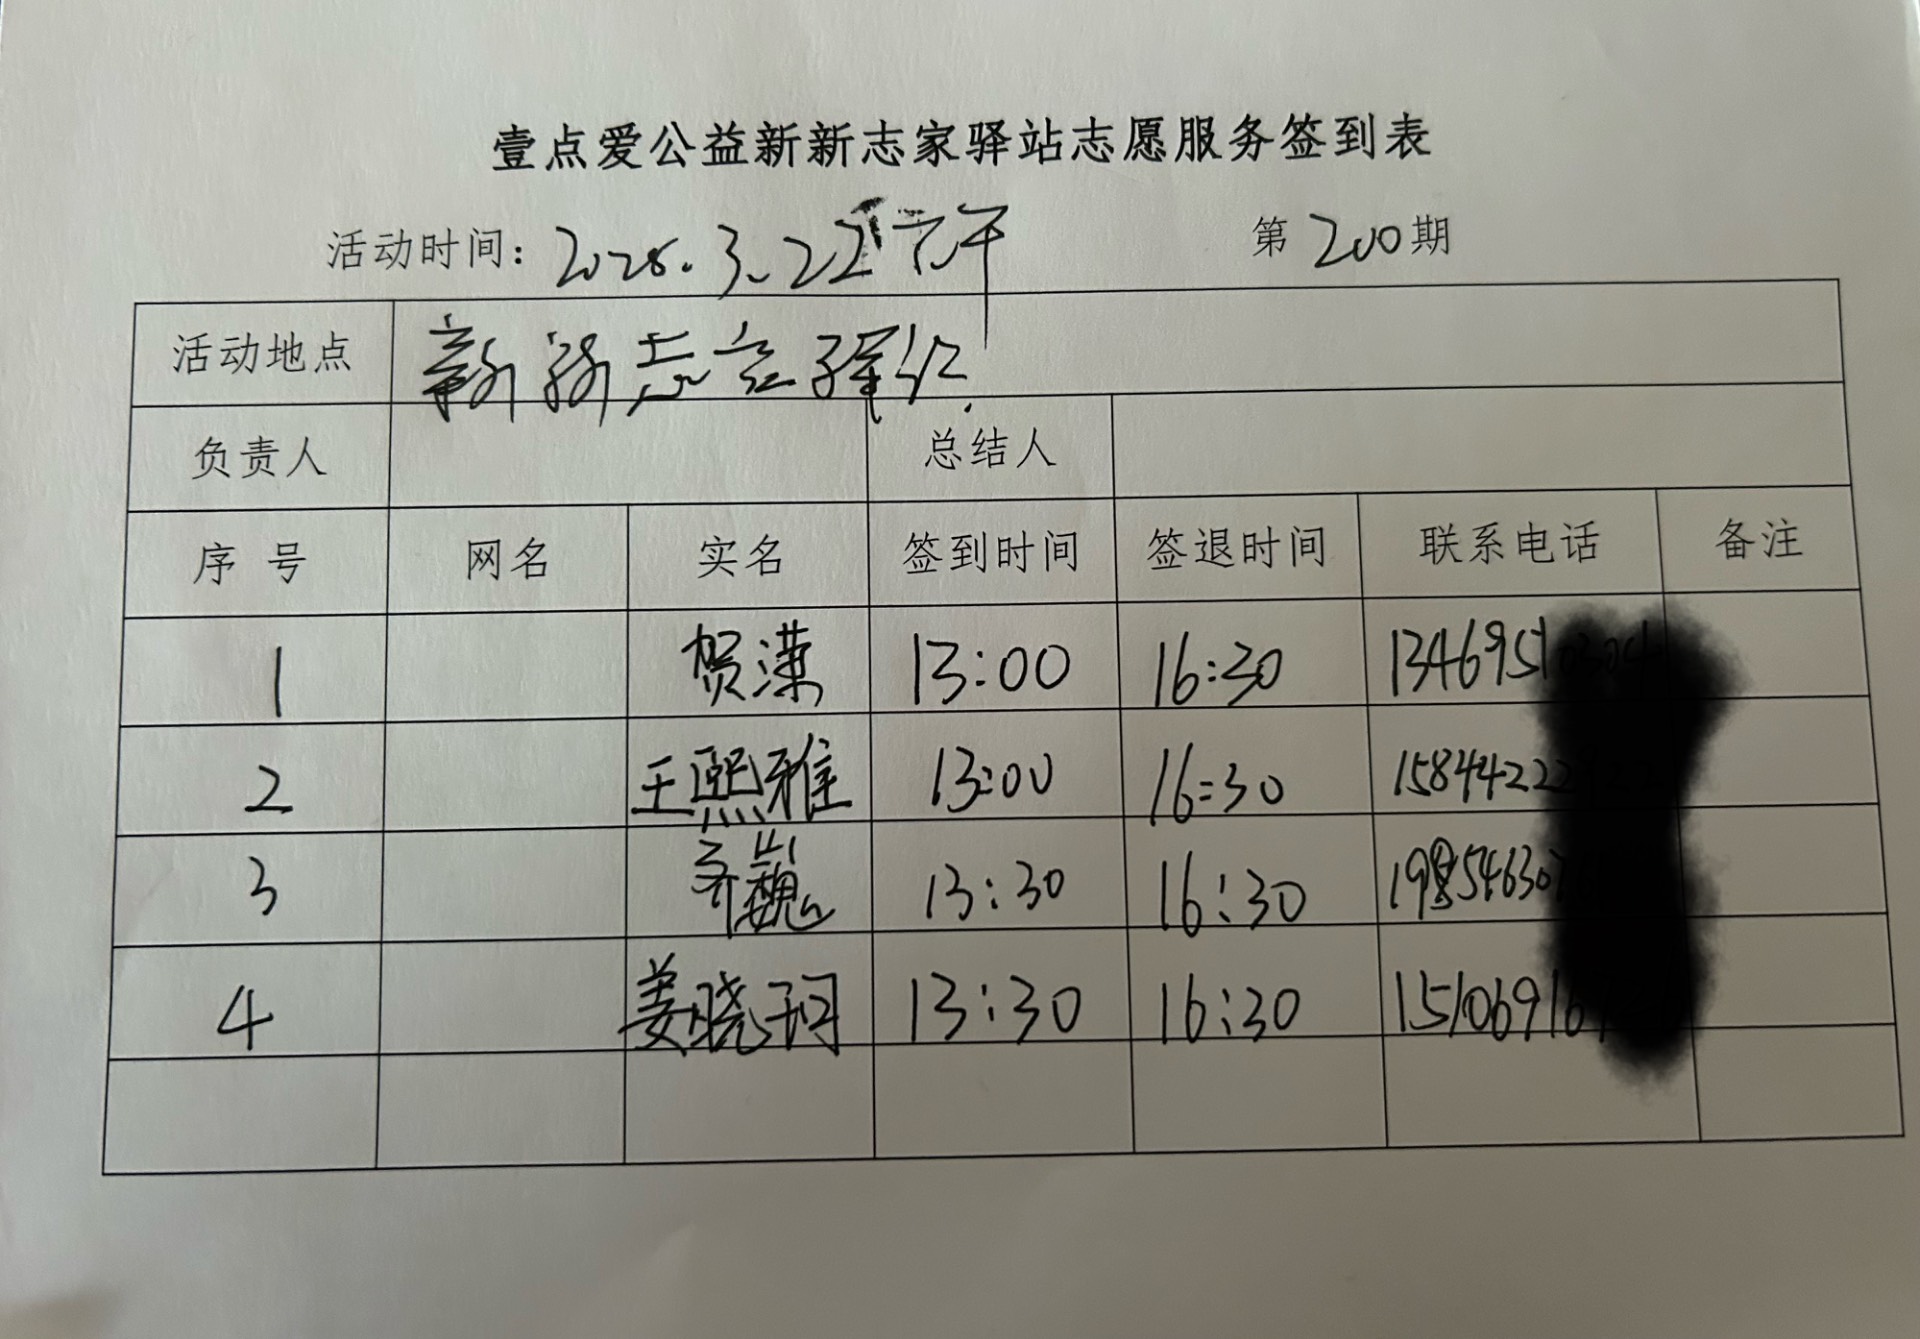 壹点爱公益新新志家驿站志愿服务签到表
活动时间: 2026.3.22下午 第200期
活动地点 新新志家驿站
负责人 总结人
序号 网名 实名 签到时间 签退时间 联系电话 备注
1 贺潇 13:00 16:30 1346951
2 王熙雅 13:00 16:30 15844222
3 齐巍 13:30 16:30 198546307
4 姜晓珂 13:30 16:30 151069161